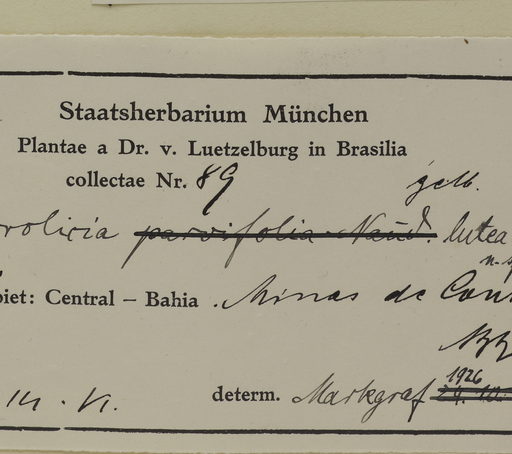 Staatsherbarium München
Plantae a Dr. v. Luetzelburg in Brasilia
collectae Nr. 89 gelb.
rolicia parvifolia Naud. lutea
n.
biet: Central – Bahia. Minas de Con
III. VI. determ. Markgraf 1926